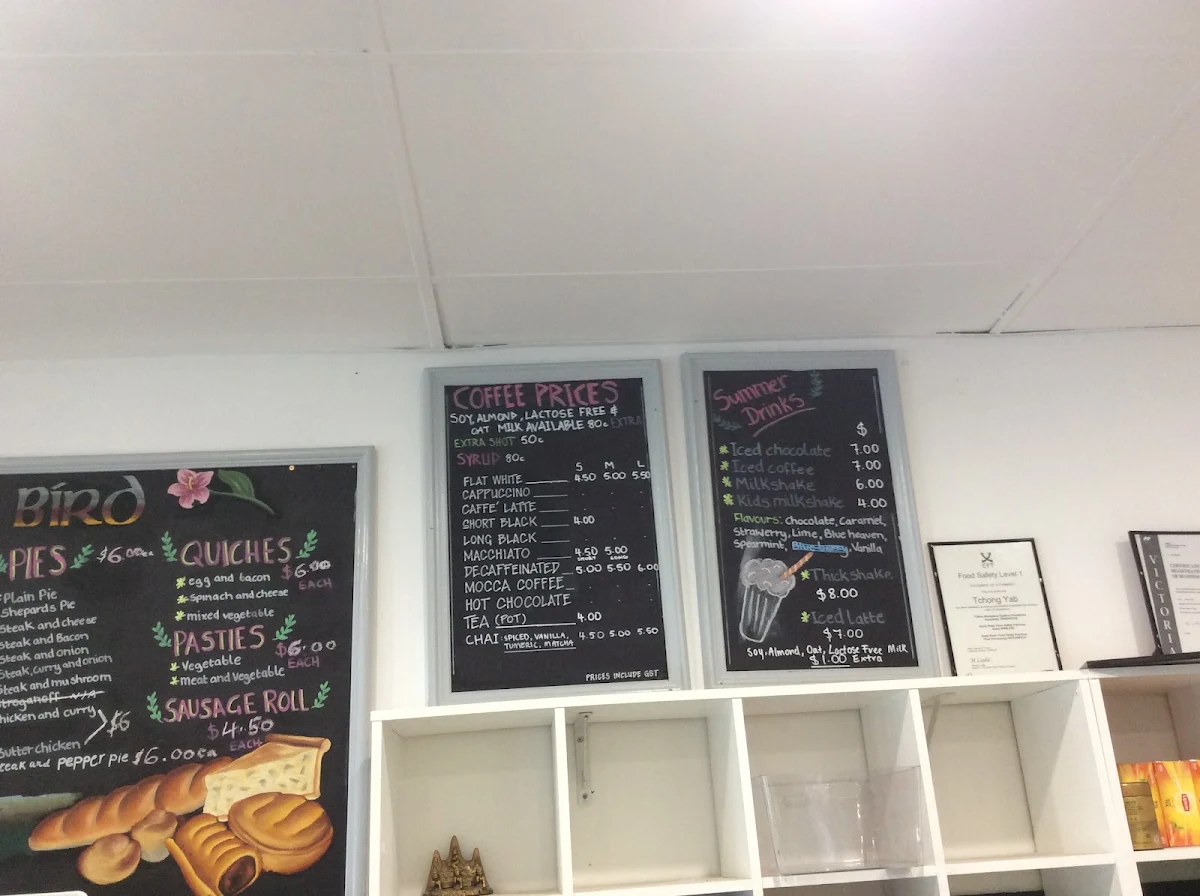 Bird
PIES $6.00ea
Plain Pie
Shepards Pie
Steak and cheese
Steak and Bacon
Steak and onion
Steak, curry and onion
Steak and mushroom
stroganoff N/A
chicken and curry
>$6
Butter chicken
steak and pepper pie $6.00ea
QUICHES
$6.00
EACH
egg and bacon
spinach and cheese
mixed vegetable
PASTIES
$6.00
EACH
Vegetable
meat and Vegetable
SAUSAGE ROLL
$4.50
EACH
COFFEE PRICES
SOY, ALMOND, LACTOSE FREE &
OAT MILK AVAILABLE 80c EXTRA
EXTRA SHOT 50c
SYRUP 80c
S M L
FLAT WHITE 4.50 5.00 5.50
CAPPUCCINO
CAFFE' LATTE
SHORT BLACK 4.00
LONG BLACK
MACCHIATO 4.50 5.00
SHORT LONG
DECAFFEINATED 5.00 5.50 6.00
MOCCA COFFEE
HOT CHOCOLATE
TEA (POT) 4.00
CHAI: SPICED, VANILLA, 4.50 5.00 5.50
TUMERIC, MATCHA
PRICES INCLUDE GST
Summer
Drinks
$
Iced chocolate 7.00
Iced coffee 7.00
Milkshake 6.00
Kids milkshake 4.00
Flavours: chocolate, Caramel,
Strawberry, Lime, Blue heaven,
Spearmint, Blueberry, Vanilla
Thickshake
$8.00
Iced latte
$7.00
Soy, Almond, Oat, Lactose Free Milk
$1.00 Extra
CFT
Food Safety Level 1
Tchong Yab
VICTORIA